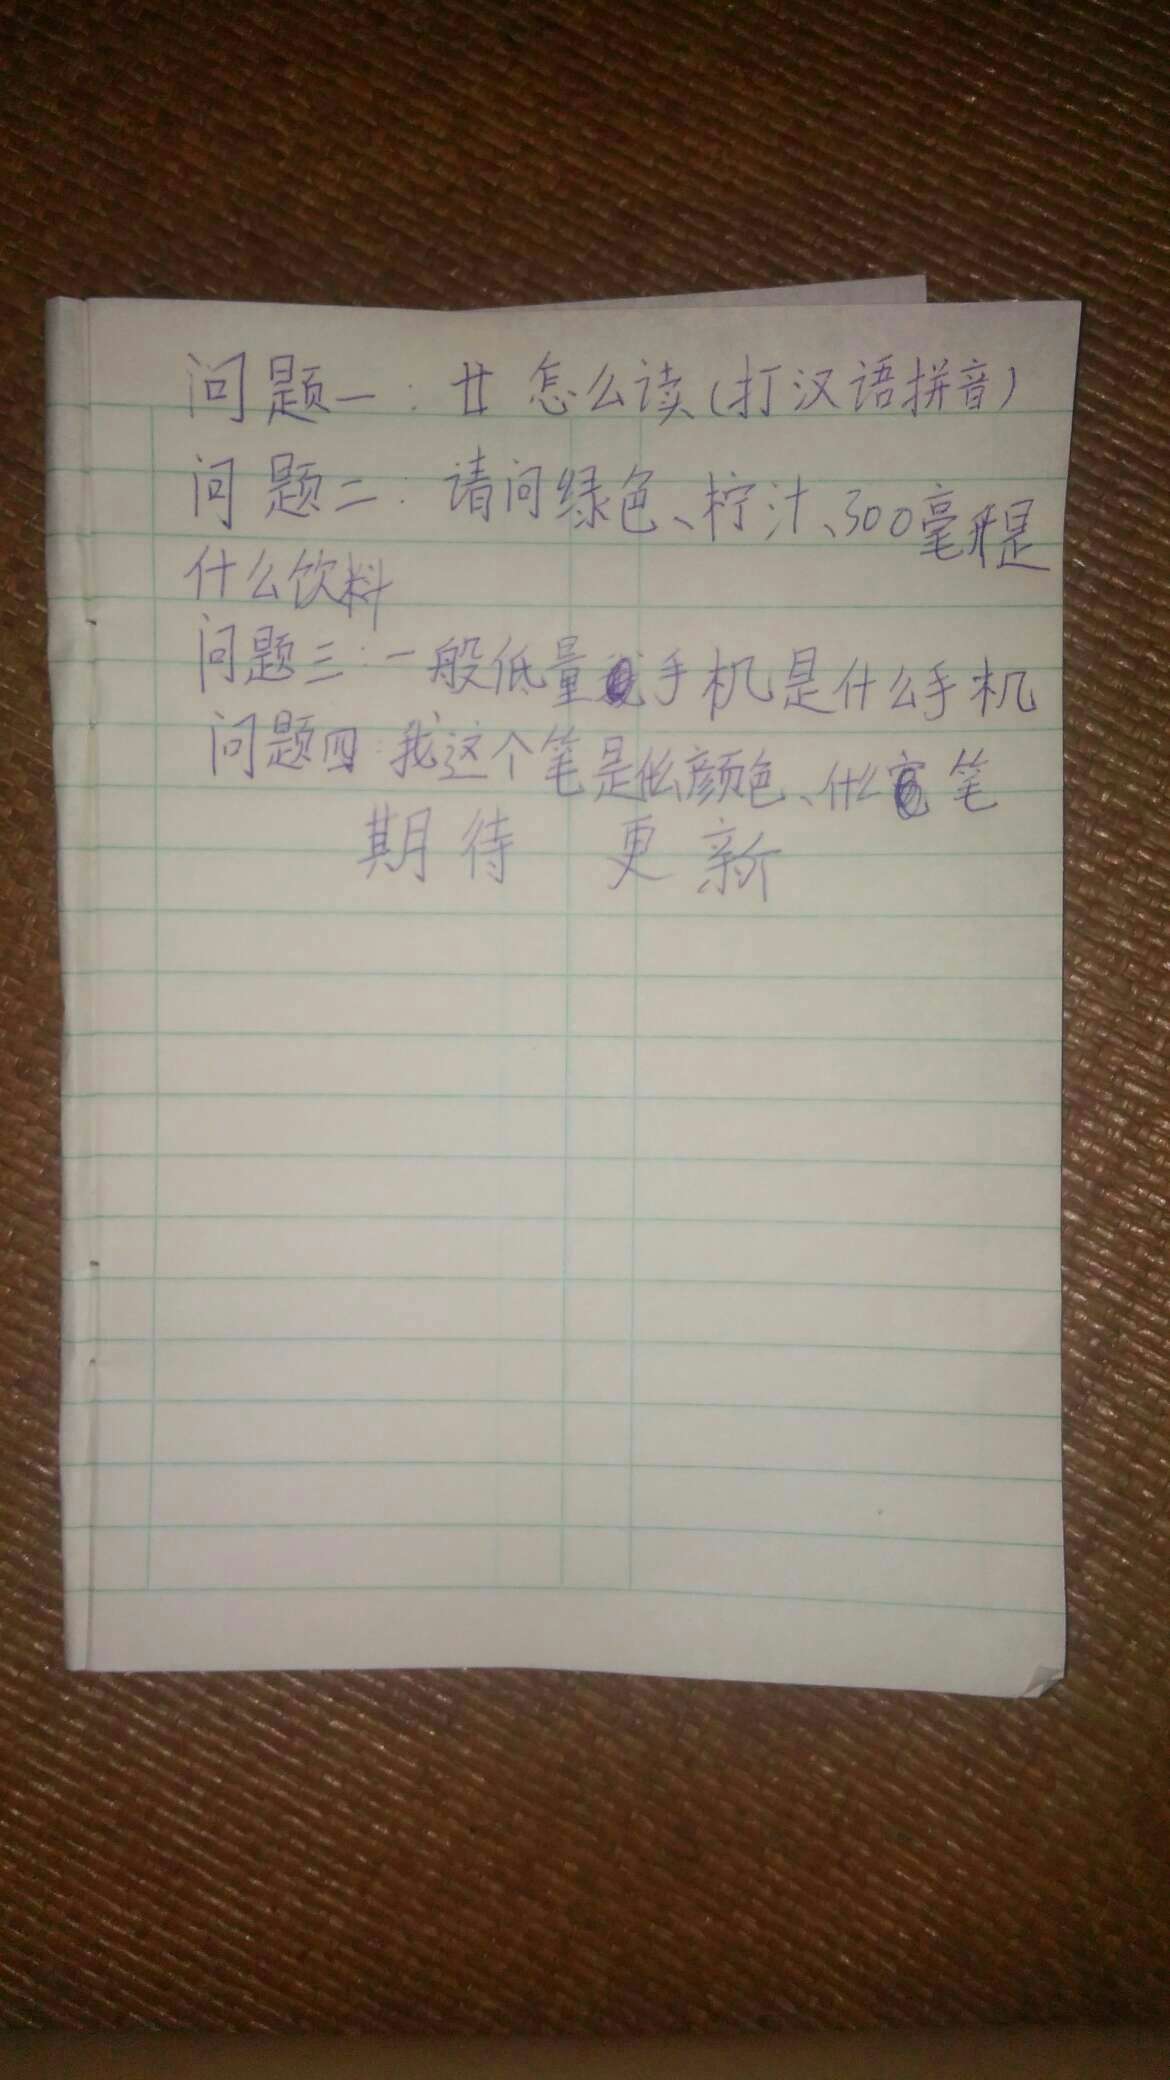 问题一：廿怎么读（打汉语拼音）
问题二：请问绿色、柠汁、300毫升是
什么饮料
问题三：一般低量手机是什么手机
问题四：我这个笔是什么颜色、什么笔
期待 更新